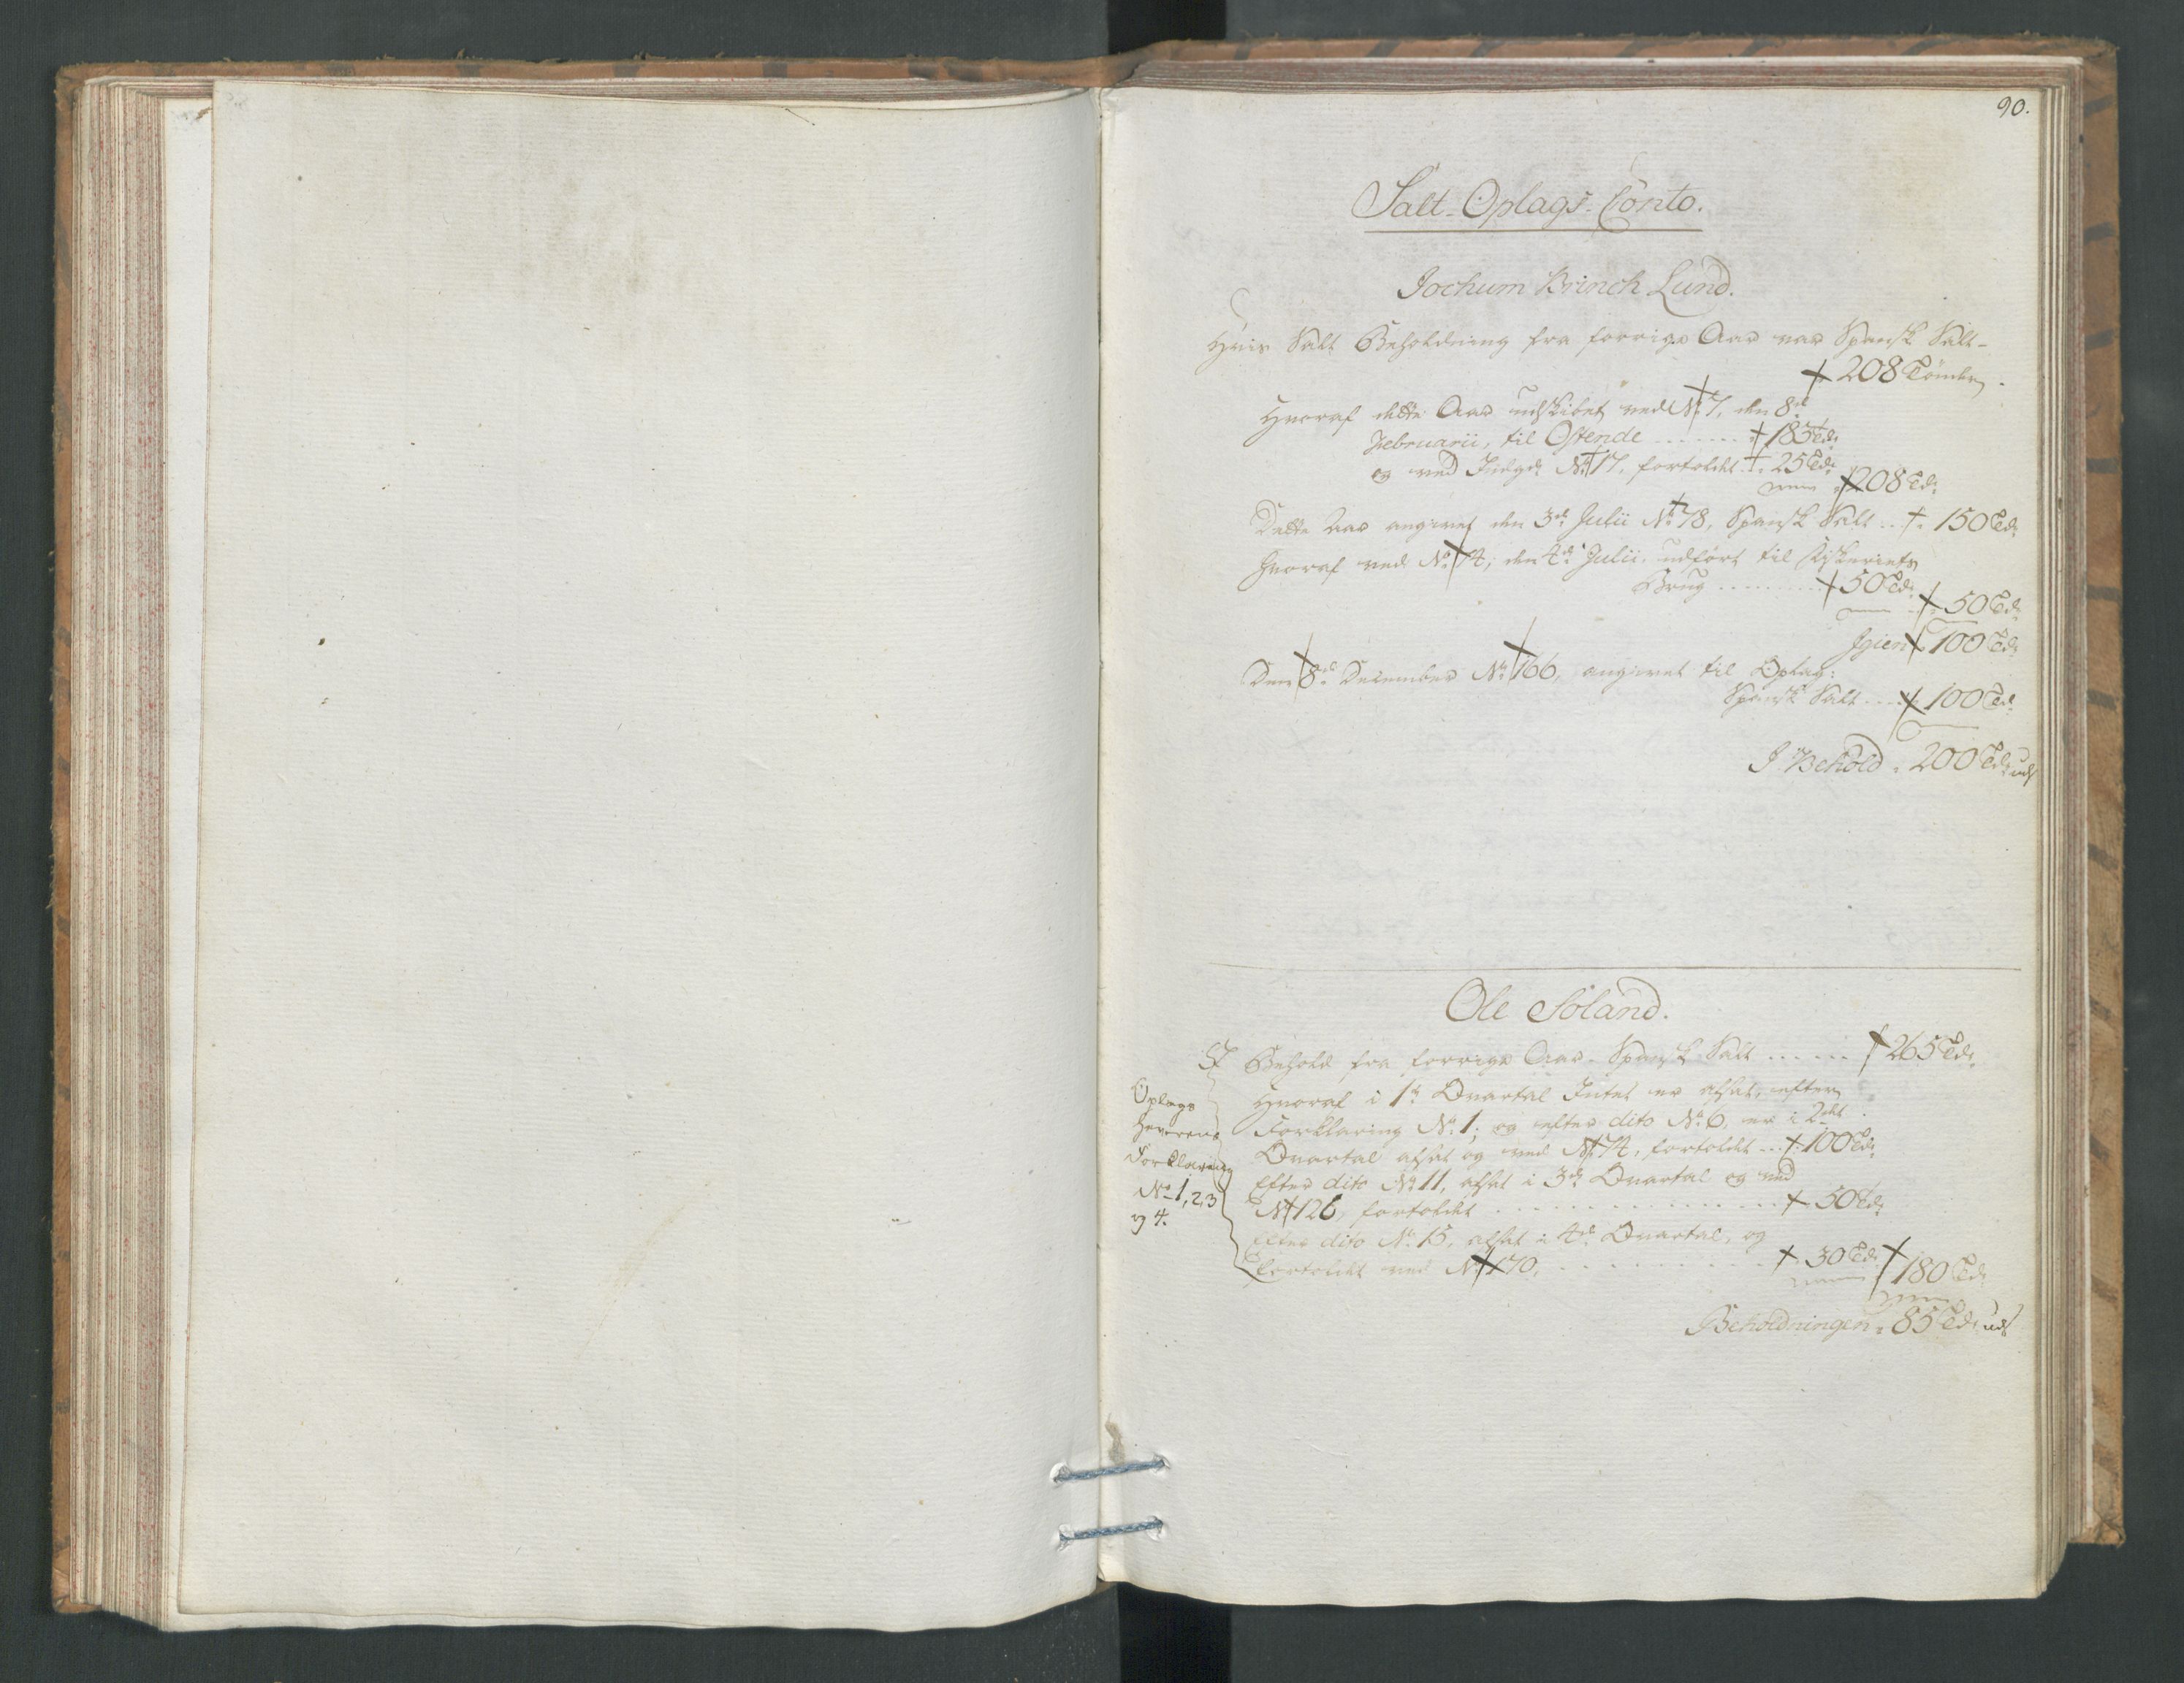 90.
Salt-Oplags-Conto.
Jochum Brinch Lund.
Hvis Salt Beholdning fra forrige Aar var Spansk Salt-
208 Tönder.
Hvoraf dette Aar udskibet ved No. 7, den 8de
Februarii, til Ostende . . . . . . . 183 Tdr
og ved No. 17, fortoldet . 25 Tdr
208 Tdr
Dette Aar angivet den 3de Julii No. 78, Spansk Salt . . 150 Tdr
hvoraf ved No. 74, den 4de Julii, udfört til Fiskeriets
Brug . . . . . . . . . 50 Tdr
50 Tdr
Igien 100 Tdr
Den 8de December No. 166, angivet til Oplag:
Spansk Salt . . . . 100 Tdr
I Behold . 200 Tdr uds
Ole Söland.
I Behold fra forrige Aar Spansk Salt . . . . . . 265 Tdr
Hvoraf i 1te Qvartal Intet er afsat, efter
Forklaring No. 1; og efter dito No. 6, er i 2det
Qvartal afsat og ved No. 74, fortoldet . . . 100 Tdr
Efter dito No. 11, afsat i 3de Qvartal og ved
No. 126, fortoldet . . . . . . . . . . . . . . . . 50 Tdr
Efter dito No. 15, afsat i 4de Qvartal, og
fortoldet ved No. 170, . . . . . . . . . . . . 30 Tdr
180 Tdr
Beholdningen . 85 Tdr uds
Oplags
Haverens
Forklaring
No. 1, 2, 3
og 4.